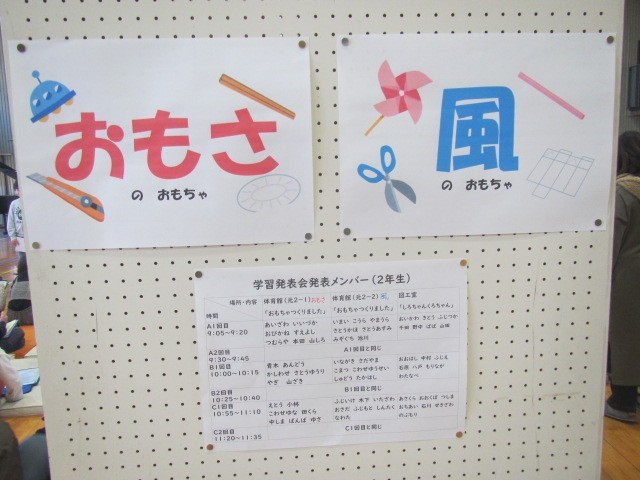 おもさ
の おもちゃ
風
の おもちゃ
学習発表会発表メンバー(2年生)
場所・内容 体育館(北2-1)おもさ 体育館(北2-2)風 図工室
時間 「おもちゃつくりました」 「おもちゃつくりました」 「しろちゃんくろちゃん」
A1回目 あいざわ いいづか いまい こうら やまうら おいかわ さとう ふじつか
9:05~9:20 おびかね すえよし さとうかほ さとうあずみ 千田 野寺 ばば 山崎
つむらや 本田 山しろ みぞぐち 池付
A2回目 A1回目と同じ
9:30~9:45
B1回目 青木 あんどう いながき さだやま おおはし 中村 ふじえ
10:00~10:15 かしわせ さとうゆうり こまつ こわせゆうせい 石原 八戸 もりなが
やぎ 山ざき しゅどう たかはし わたなべ
B2回目 B1回目と同じ
10:25~10:40
C1回目 えとう 小林 ふじいけ 木下 いたざわ あさくら おおくぼ つしま
10:55~11:10 こわせゆな 田くら おさだ ふじもと しんたく おちあい 石川 せきざわ
中しま ばんば ゆざ なわた のぶもり
C2回目 C1回目と同じ
11:20~11:35